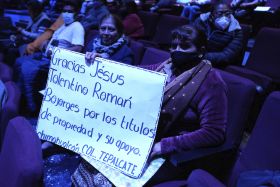 Gracias Jesús
Tolentino Román
Bojorges por los titulos
de propiedad y su apoyo.
chimalhuacán COL. TEPALCATE